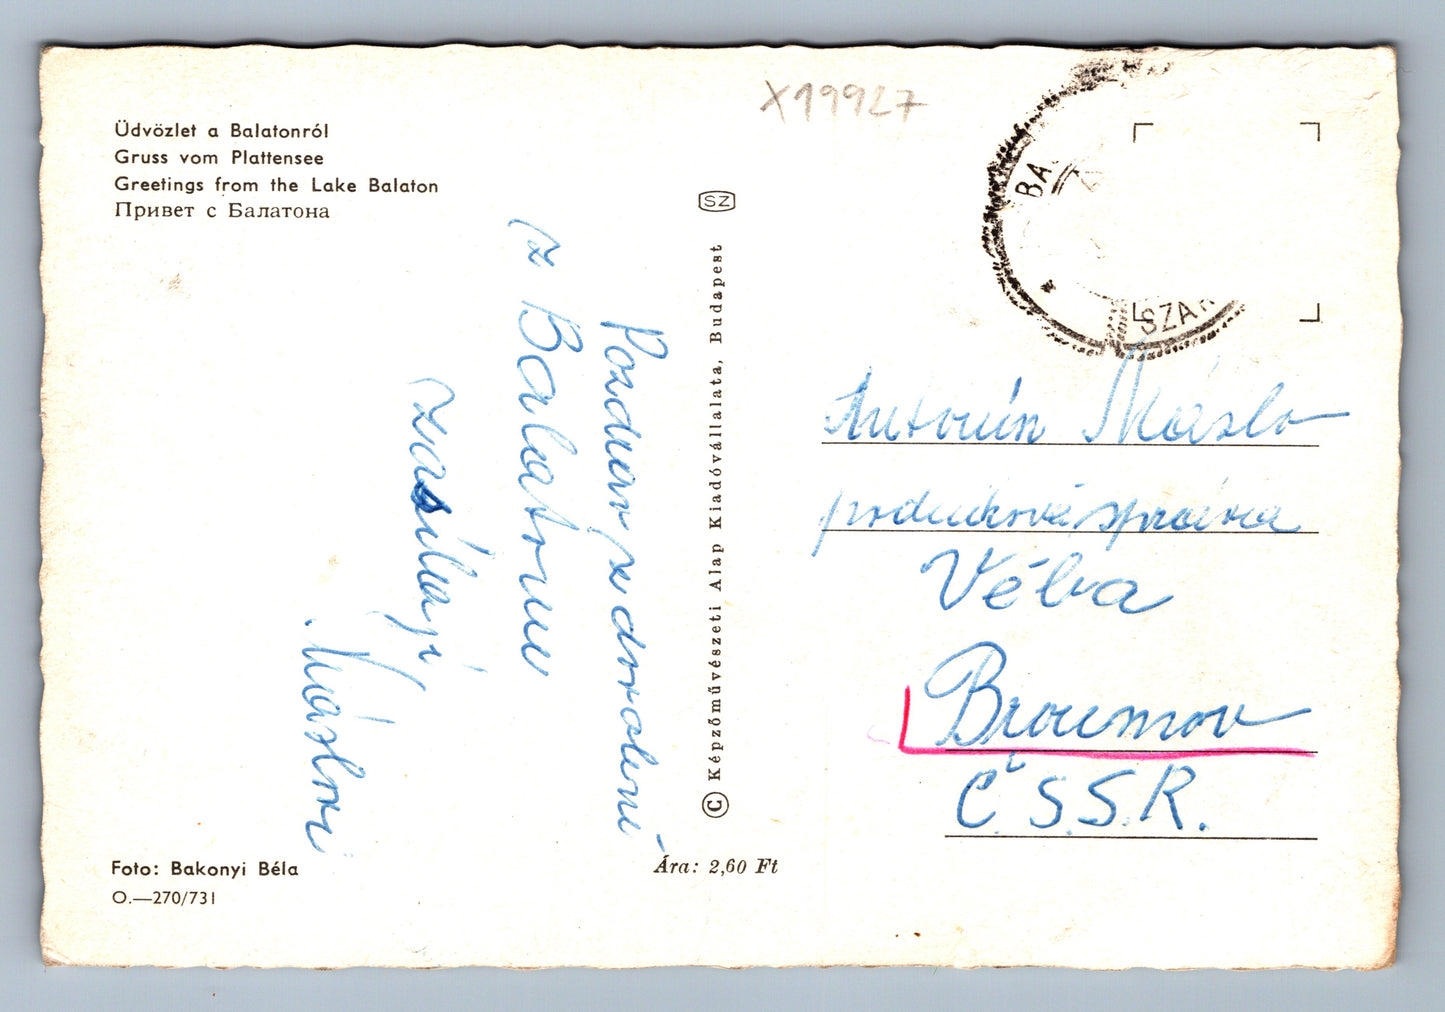 Üdvözlet a Balatonról
Gruss vom Plattensee
Greetings from the Lake Balaton
Привет с Балатона
X19927
SZ
BA
SZAR
Pozdrav z dovolené
z Balatonu
zasílají
Máslovi
© Képzőművészeti Alap Kiadóvállalata, Budapest
Antonín Máslo
podniková správa
Véba
Broumov
Č.S.S.R.
Foto: Bakonyi Béla
O.—270/731
Ára: 2,60 Ft